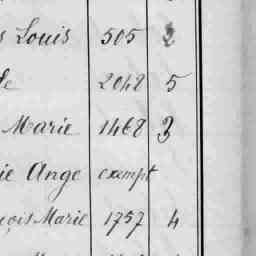 Louis 505 2
2048 5
Marie 1468 3
Ange exempt
Marie 1757 4